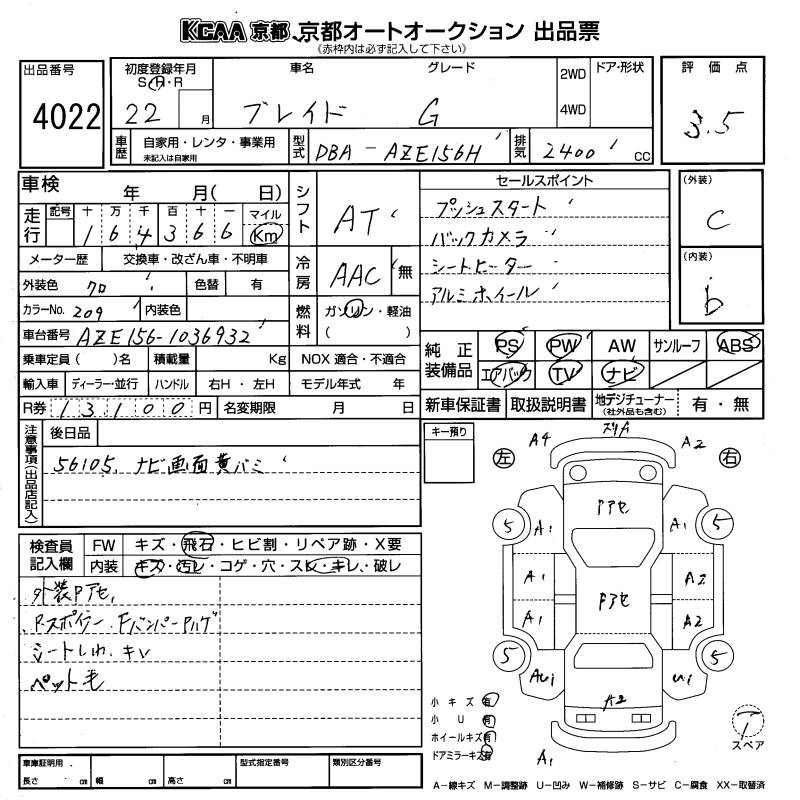 KCAA京都 京都オートオークション 出品票
《赤枠内は必ず記入して下さい》
出品番号
4022
初度登録年月
S・H・R
22 月
車名 グレード
ブレイド G
2WD
4WD
ドア・形状
評価点
3.5
車歴
自家用・レンタ・事業用
未記入は自家用
型式
DBA-AZE156H
排気
2400 cc
車検 年 月( 日)
走行
記号 十 万 千 百 十 一 マイル
1 6 4 3 6 6 Km
メーター歴 交換車・改ざん車・不明車
外装色 クロ 色替 有
カラーNo. 209 内装色
車台番号 AZE156-1036932
乗車定員( )名 積載量 Kg
輸入車 ディーラー・並行 ハンドル 右H・左H
R券 13100円 名変期限 月 日
シフト
AT
冷房
AAC 無
燃料
ガソリン・軽油
( )
NOX 適合・不適合
モデル年式 年
セールスポイント
プッシュスタート
バックカメラ
シートヒーター
アルミホイール
(外装)
C
(内装)
b
純正装備品
PS PW AW サンルーフ ABS
エアバック TV ナビ
新車保証書 取扱説明書 地デジチューナー(社外品も含む) 有・無
注意事項(出品店記入)
後日品
56105. ナビ画面黄バミ
キー預り
検査員記入欄
FW キズ・飛石・ヒビ割・リペア跡・X要
内装 キズ・汚レ・コゲ・穴・スレ・キレ・破レ
外装Pアセ,
シートしわ.キレ
ペット毛
左 右
A4 スリA A2
Pアセ
5 A1 A1 5
A1 Pアセ A2
A1 A2
5 AU1 U1 5
A2
A1
小キズ 有
小U 有
ホイールキズ 有
ドアミラーキズ 有
T
スペア
車庫証明用
長さ cm 幅 cm 高さ cm
型式指定番号
類別区分番号
A-線キズ M-調整跡 U-凹み W-補修跡 S-サビ C-腐食 XX-取替済